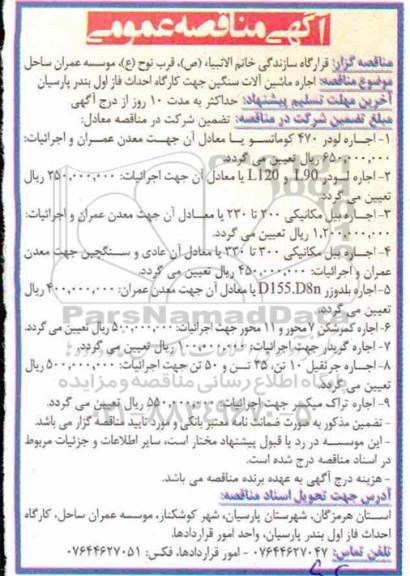 آگهی مناقصه عمومی
مناقصه گزار: قرارگاه سازندگی خاتم الانبیاء (ص)، قرب نوح (ع)، موسسه عمران ساحل
موضوع مناقصه: اجاره ماشین آلات سنگین جهت کارگاه احداث فاز اول بندر پارسیان
آخرین مهلت تسلیم پیشنهاد: حداکثر به مدت ۱۰ روز از درج آگهی
مبلغ تضمین شرکت در مناقصه: تضمین شرکت در مناقصه معادل:
۱- اجاره لودر ۴۷۰ کوماتسو یا معادل آن جهت معدن عمران و اجرائیات:
۶۵۰,۰۰۰,۰۰۰ ریال تعیین می گردد.
۲- اجاره لودر L90 و L120 یا معادل آن جهت اجرائیات: ۲۵۰,۰۰۰,۰۰۰ ریال
تعیین می گردد.
۳- اجاره بیل مکانیکی ۲۰۰ تا ۲۳۰ یا معادل آن جهت معدن عمران و اجرائیات:
۱,۲۰۰,۰۰۰,۰۰۰ ریال تعیین می گردد.
۴- اجاره بیل مکانیکی ۳۰۰ تا ۳۳۰ یا معادل آن عادی و سنگچین جهت معدن
عمران و اجرائیات: ۴۵۰,۰۰۰,۰۰۰ ریال تعیین می گردد.
۵- اجاره بلدوزر D155.D8n یا معادل آن جهت معدن عمران: ۴۰۰,۰۰۰,۰۰۰ ریال
تعیین می گردد.
۶- اجاره کمرشکن ۷ محور و ۱۱ محور جهت اجرائیات: ۵۰۰,۰۰۰,۰۰۰ ریال تعیین می گردد.
۷- اجاره گریدر جهت اجرائیات: ریال تعیین می گردد.
۸- اجاره جرثقیل ۱۰ تن، ۳۵ تن و ۵۰ تن جهت اجرائیات: ۵۰۰,۰۰۰,۰۰۰ ریال
تعیین می گردد.
۹- اجاره تراک میکسر جهت اجرائیات: ۵۵۰,۰۰۰,۰۰۰ ریال تعیین می گردد.
- تضمین مذکور به صورت ضمانت نامه معتبر بانکی و مورد تأیید مناقصه گزار می باشد.
- این موسسه در رد یا قبول پیشنهاد مختار است، سایر اطلاعات و جزئیات مربوط
در اسناد مناقصه درج شده است.
- هزینه درج آگهی به عهده برنده مناقصه می باشد.
آدرس جهت تحویل اسناد مناقصه:
استان هرمزگان، شهرستان پارسیان، شهر کوشکنار، موسسه عمران ساحل، کارگاه
احداث فاز اول بندر پارسیان، واحد امور قراردادها.
تلفن تماس: ۰۷۶۴۴۶۲۷۰۴۷ - امور قراردادها، فکس: ۰۷۶۴۴۶۲۷۰۵۱
ParsNamadData
پایگاه اطلاع رسانی مناقصه و مزایده
۰۲۱-۸۸۳۴۹۶۷۰-۵